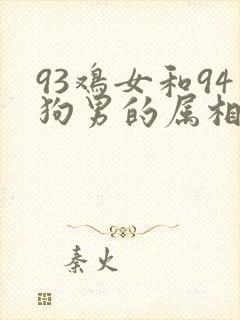 93鸡女和94
狗男的属相
秦火